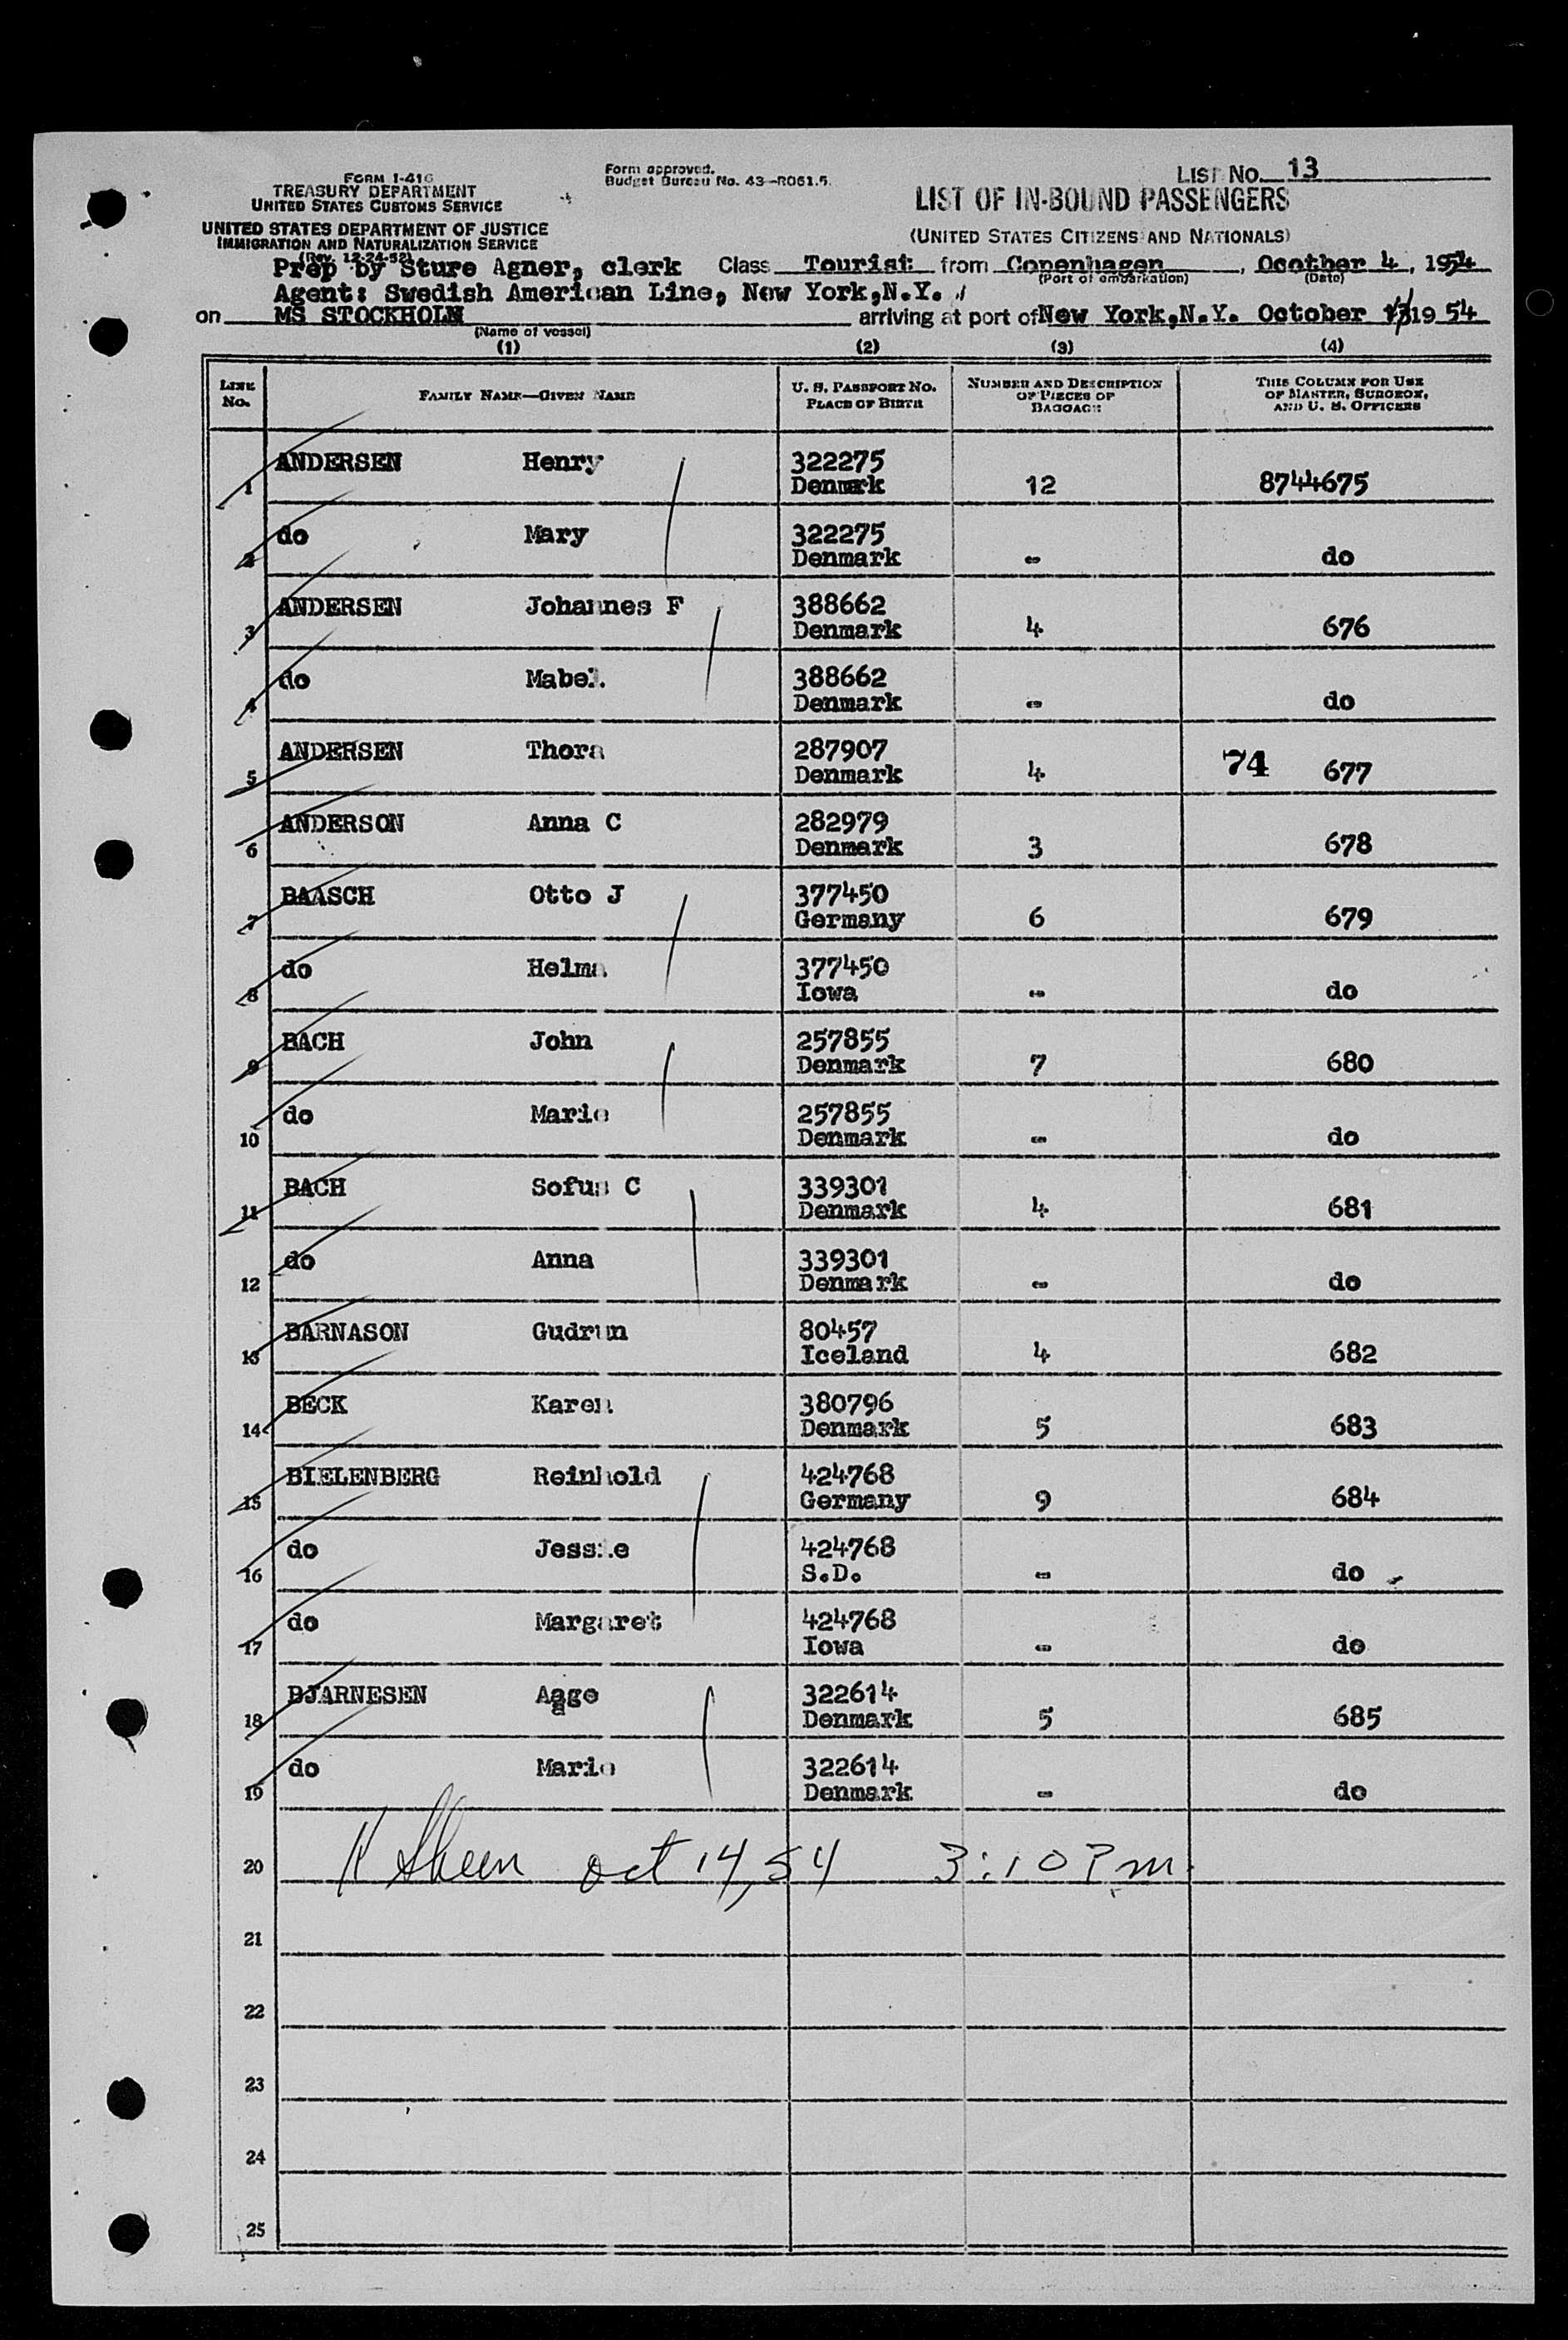 FORM I-416
TREASURY DEPARTMENT
UNITED STATES CUSTOMS SERVICE
UNITED STATES DEPARTMENT OF JUSTICE
IMMIGRATION AND NATURALIZATION SERVICE
(Rev. 12-24-52)
Form approved.
Budget Bureau No. 43-R061.5.
LIST No. 13
LIST OF IN-BOUND PASSENGERS
(UNITED STATES CITIZENS AND NATIONALS)
Prep by Sture Agner, clerk Class Tourist from Copenhagen, Ocotber 4, 1954
(Port of embarkation) (Date)
Agent: Swedish American Line, New York,N.Y.
on MS STOCKHOLM arriving at port of New York,N.Y. October 1954
(Name of vessel)
(1) (2) (3) (4)
LINE No. FAMILY NAME—GIVEN NAME U. S. PASSPORT No. PLACE OF BIRTH NUMBER AND DESCRIPTION OF PIECES OF BAGGAGE THIS COLUMN FOR USE OF MASTER, SURGEON, AND U. S. OFFICERS
ANDERSEN Henry 322275
1 Denmark 12 8744675
do Mary 322275
2 Denmark - do
ANDERSEN Johannes F 388662
3 Denmark 4 676
do Mabel 388662
4 Denmark - do
ANDERSEN Thora 287907
5 Denmark 4 74 677
ANDERSON Anna C 282979
6 Denmark 3 678
BAASCH Otto J 377450
7 Germany 6 679
do Helma 377450
8 Iowa - do
BACH John 257855
9 Denmark 7 680
do Marie 257855
10 Denmark - do
BACH Sofus C 339301
11 Denmark 4 681
do Anna 339301
12 Denmark - do
BARNASON Gudrun 80457
13 Iceland 4 682
BECK Karen 380796
14 Denmark 5 683
BIELENBERG Reinhold 424768
15 Germany 9 684
do Jessie 424768
16 S.D. - do
do Margaret 424768
17 Iowa - do
BJARNESEN Aage 322614
18 Denmark 5 685
do Marie 322614
19 Denmark - do
20 oct 14, 54 3:10 Pm.
21
22
23
24
25